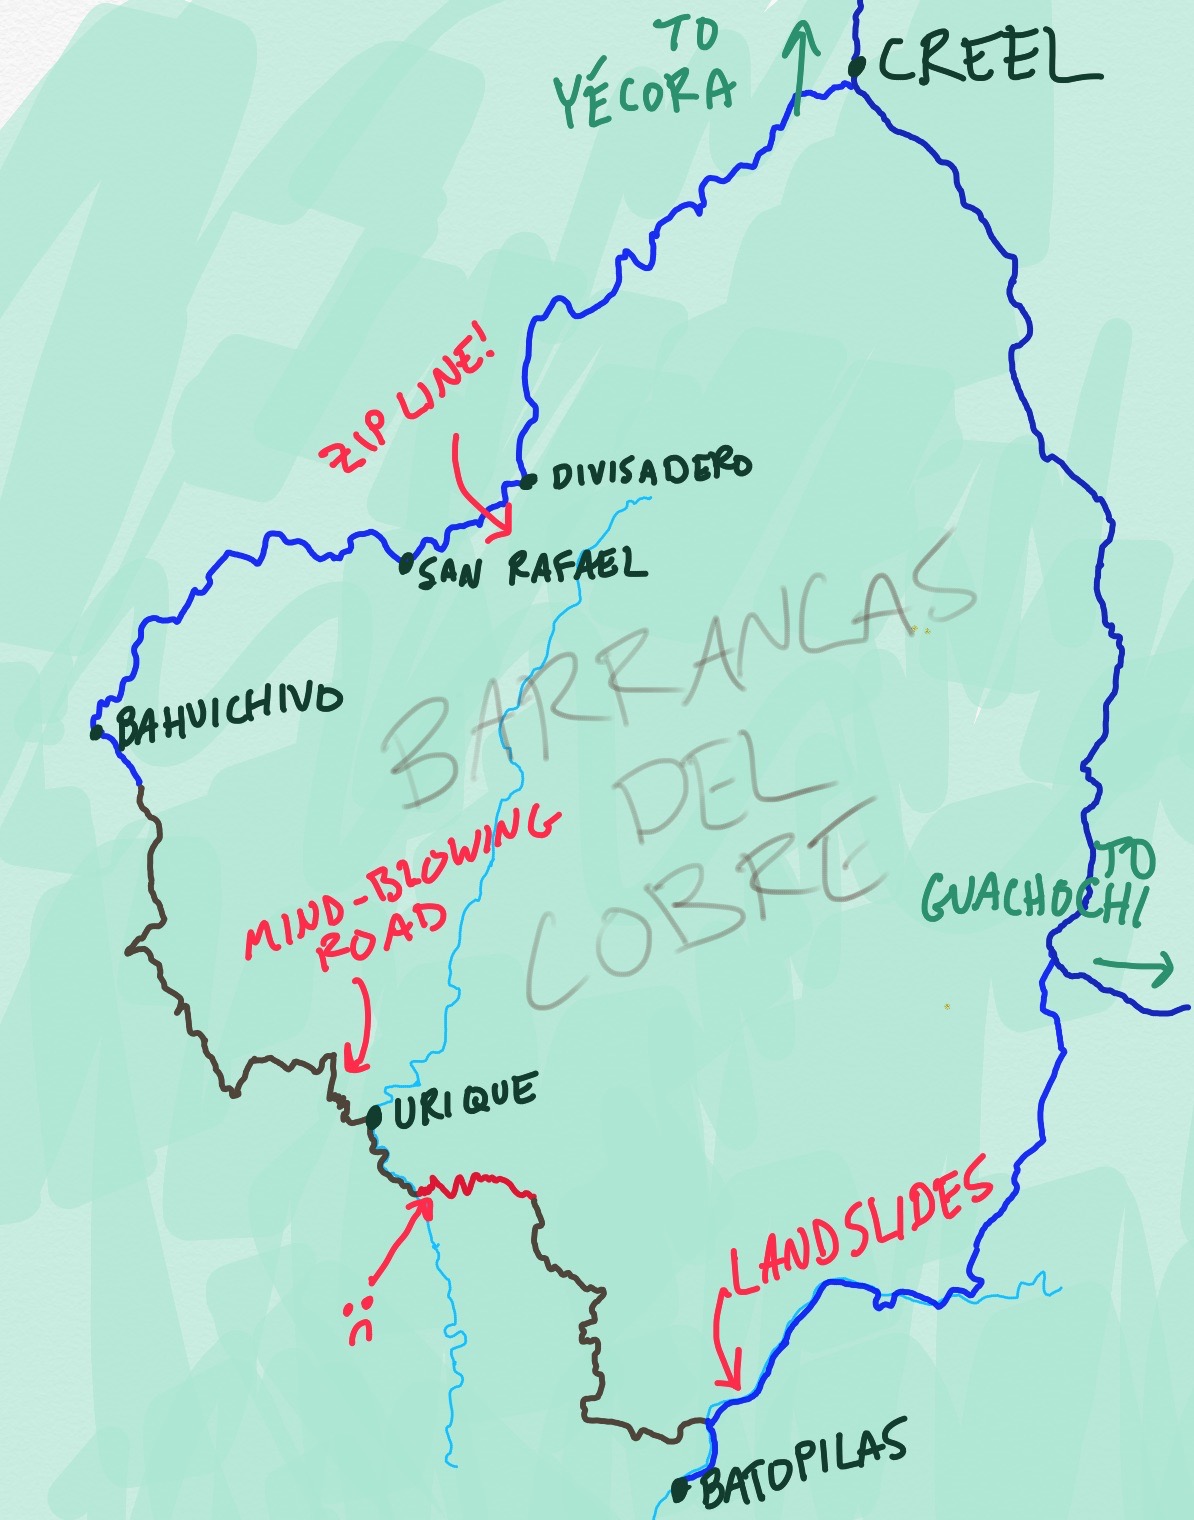 TO
YÉCORA
CREEL
ZIP LINE!
DIVISADERO
SAN RAFAEL
BARRANCAS
DEL
COBRE
BAHUICHIVO
MIND-BLOWING
ROAD
TO
GUACHOCHI
URIQUE
LANDSLIDES
:(
BATOPILAS